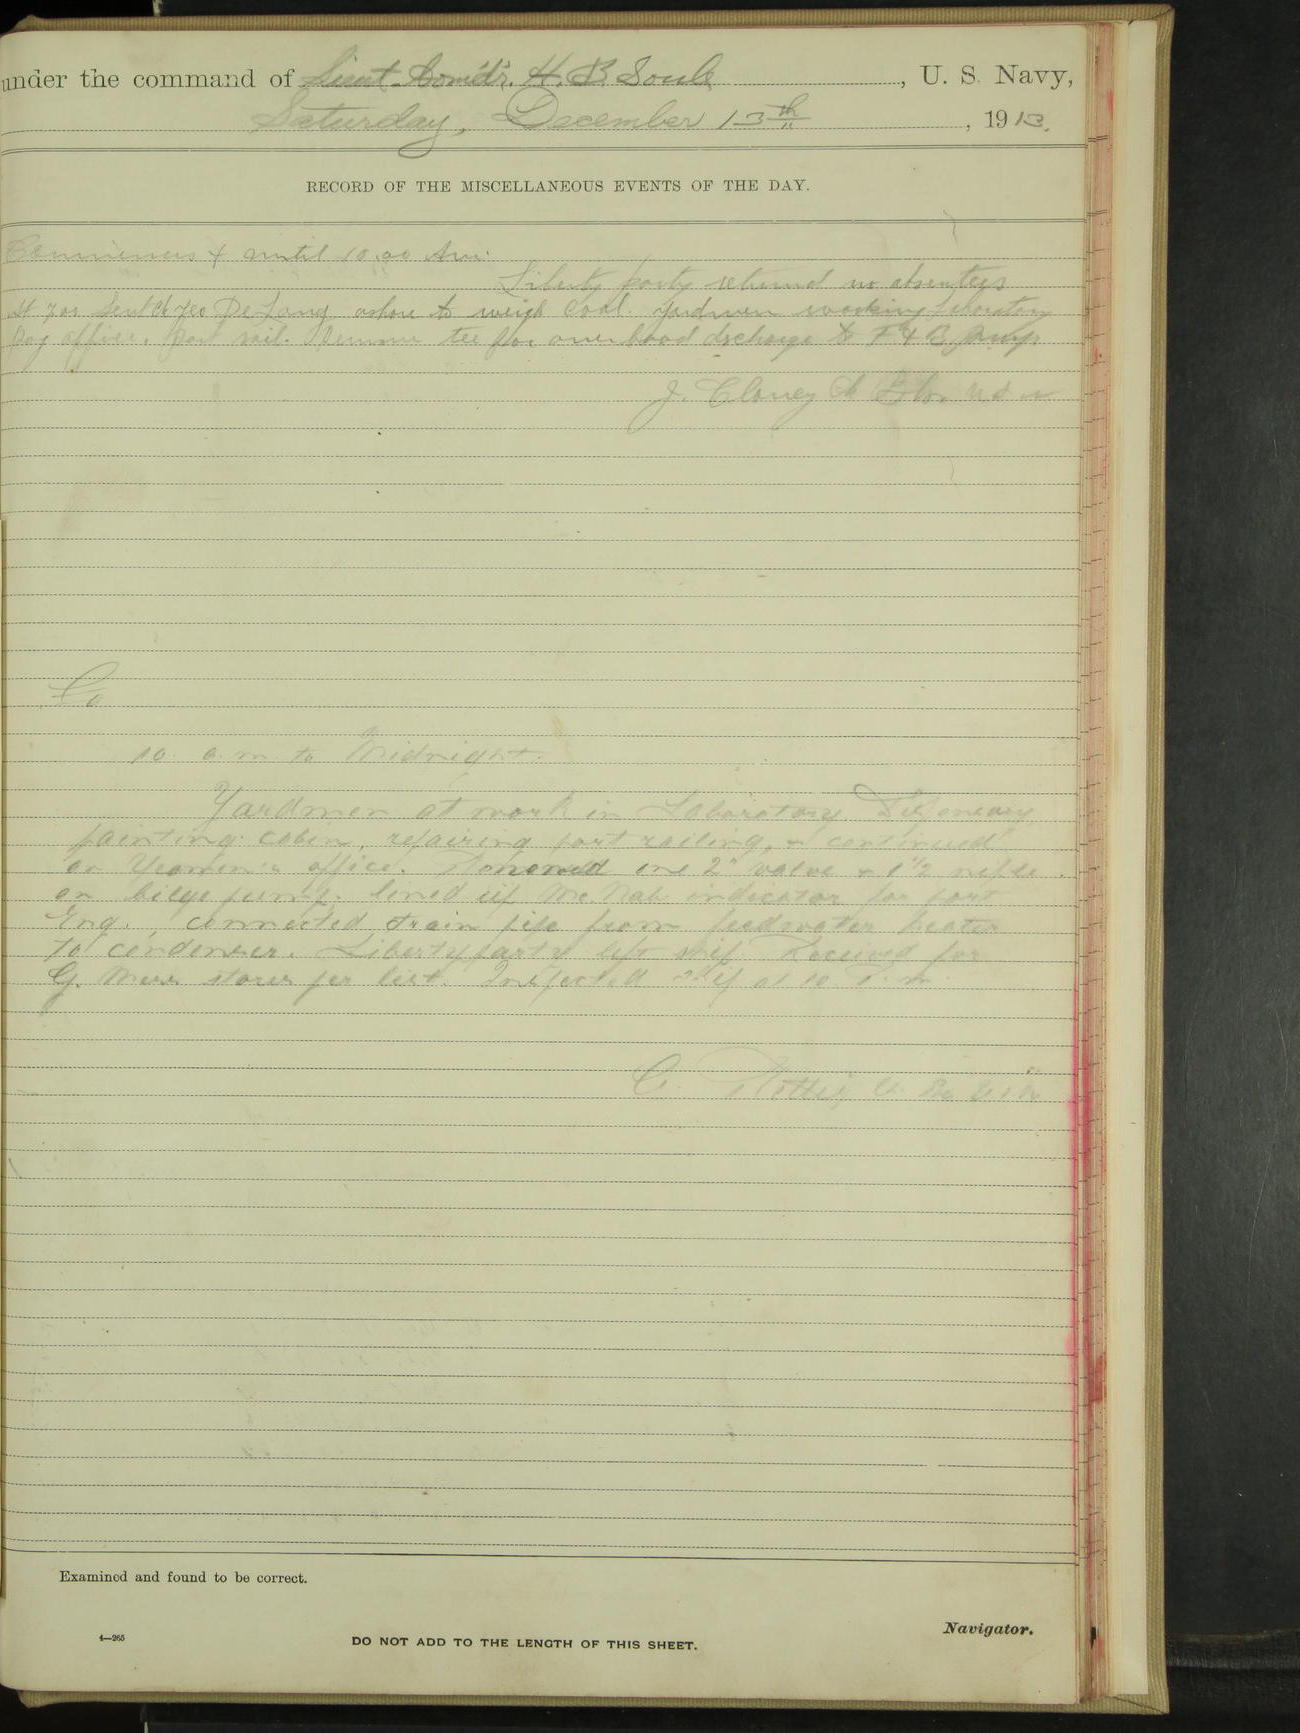 under the command of Lieut. Comd'r. H. B. Soule, U. S. Navy,
Saturday, December 13th, 1913.
RECORD OF THE MISCELLANEOUS EVENTS OF THE DAY.
Commences & until 10.00 Am:
Liberty party returned no absentees
Sent De Long ashore to weigh Coal. Yardmen working Laboratory
office. Port rail. tee for overboard discharge to F & B Pump
J. Cloney
Co
10. a. m to Midnight.
Yardmen at work in Laboratory, Dispensary,
painting cabin, repairing port railing, & continued
on Yeoman's office. one 2" valve & 1 1/2 nipple
on bilge pump, lined up Mc.Nab indicator for port
Eng., connected drain pipe from feedwater heater
to condenser. Liberty party left ship. Received for
G. Mess stores per list. Inspected ship at 10. P. m
C.
Examined and found to be correct.
4—265
DO NOT ADD TO THE LENGTH OF THIS SHEET.
Navigator.